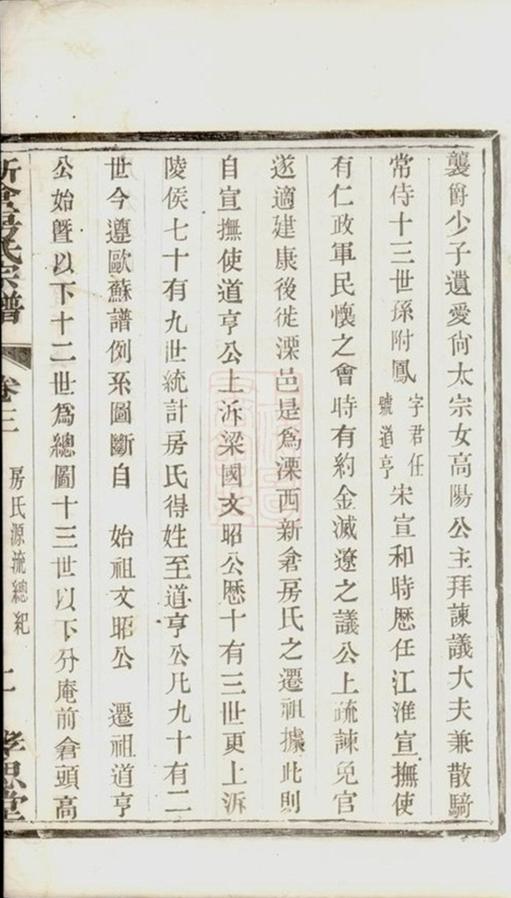 襲爵少子遺愛尙太宗女高陽公主拜諫議大夫兼散騎
常侍十三世孫附鳳字君任號道亨宋宣和時歷任江淮宣撫使
有仁政軍民懷之會時有約金滅遼之議公上疏諫免官
遂適建康後徙溧邑是爲溧西新倉房氏之遷祖據此則
自宣撫使道亨公上泝梁國文昭公歷十有三世更上泝
陵侯七十有九世統計房氏得姓至道亨公凡九十有二
世今遵歐蘇譜例系圖斷自　始祖文昭公　遷祖道亨
公始曁以下十二世爲總圖十三世以下分庵前倉頭高
新倉房氏宗譜　卷三　房氏源流總紀　孝思堂